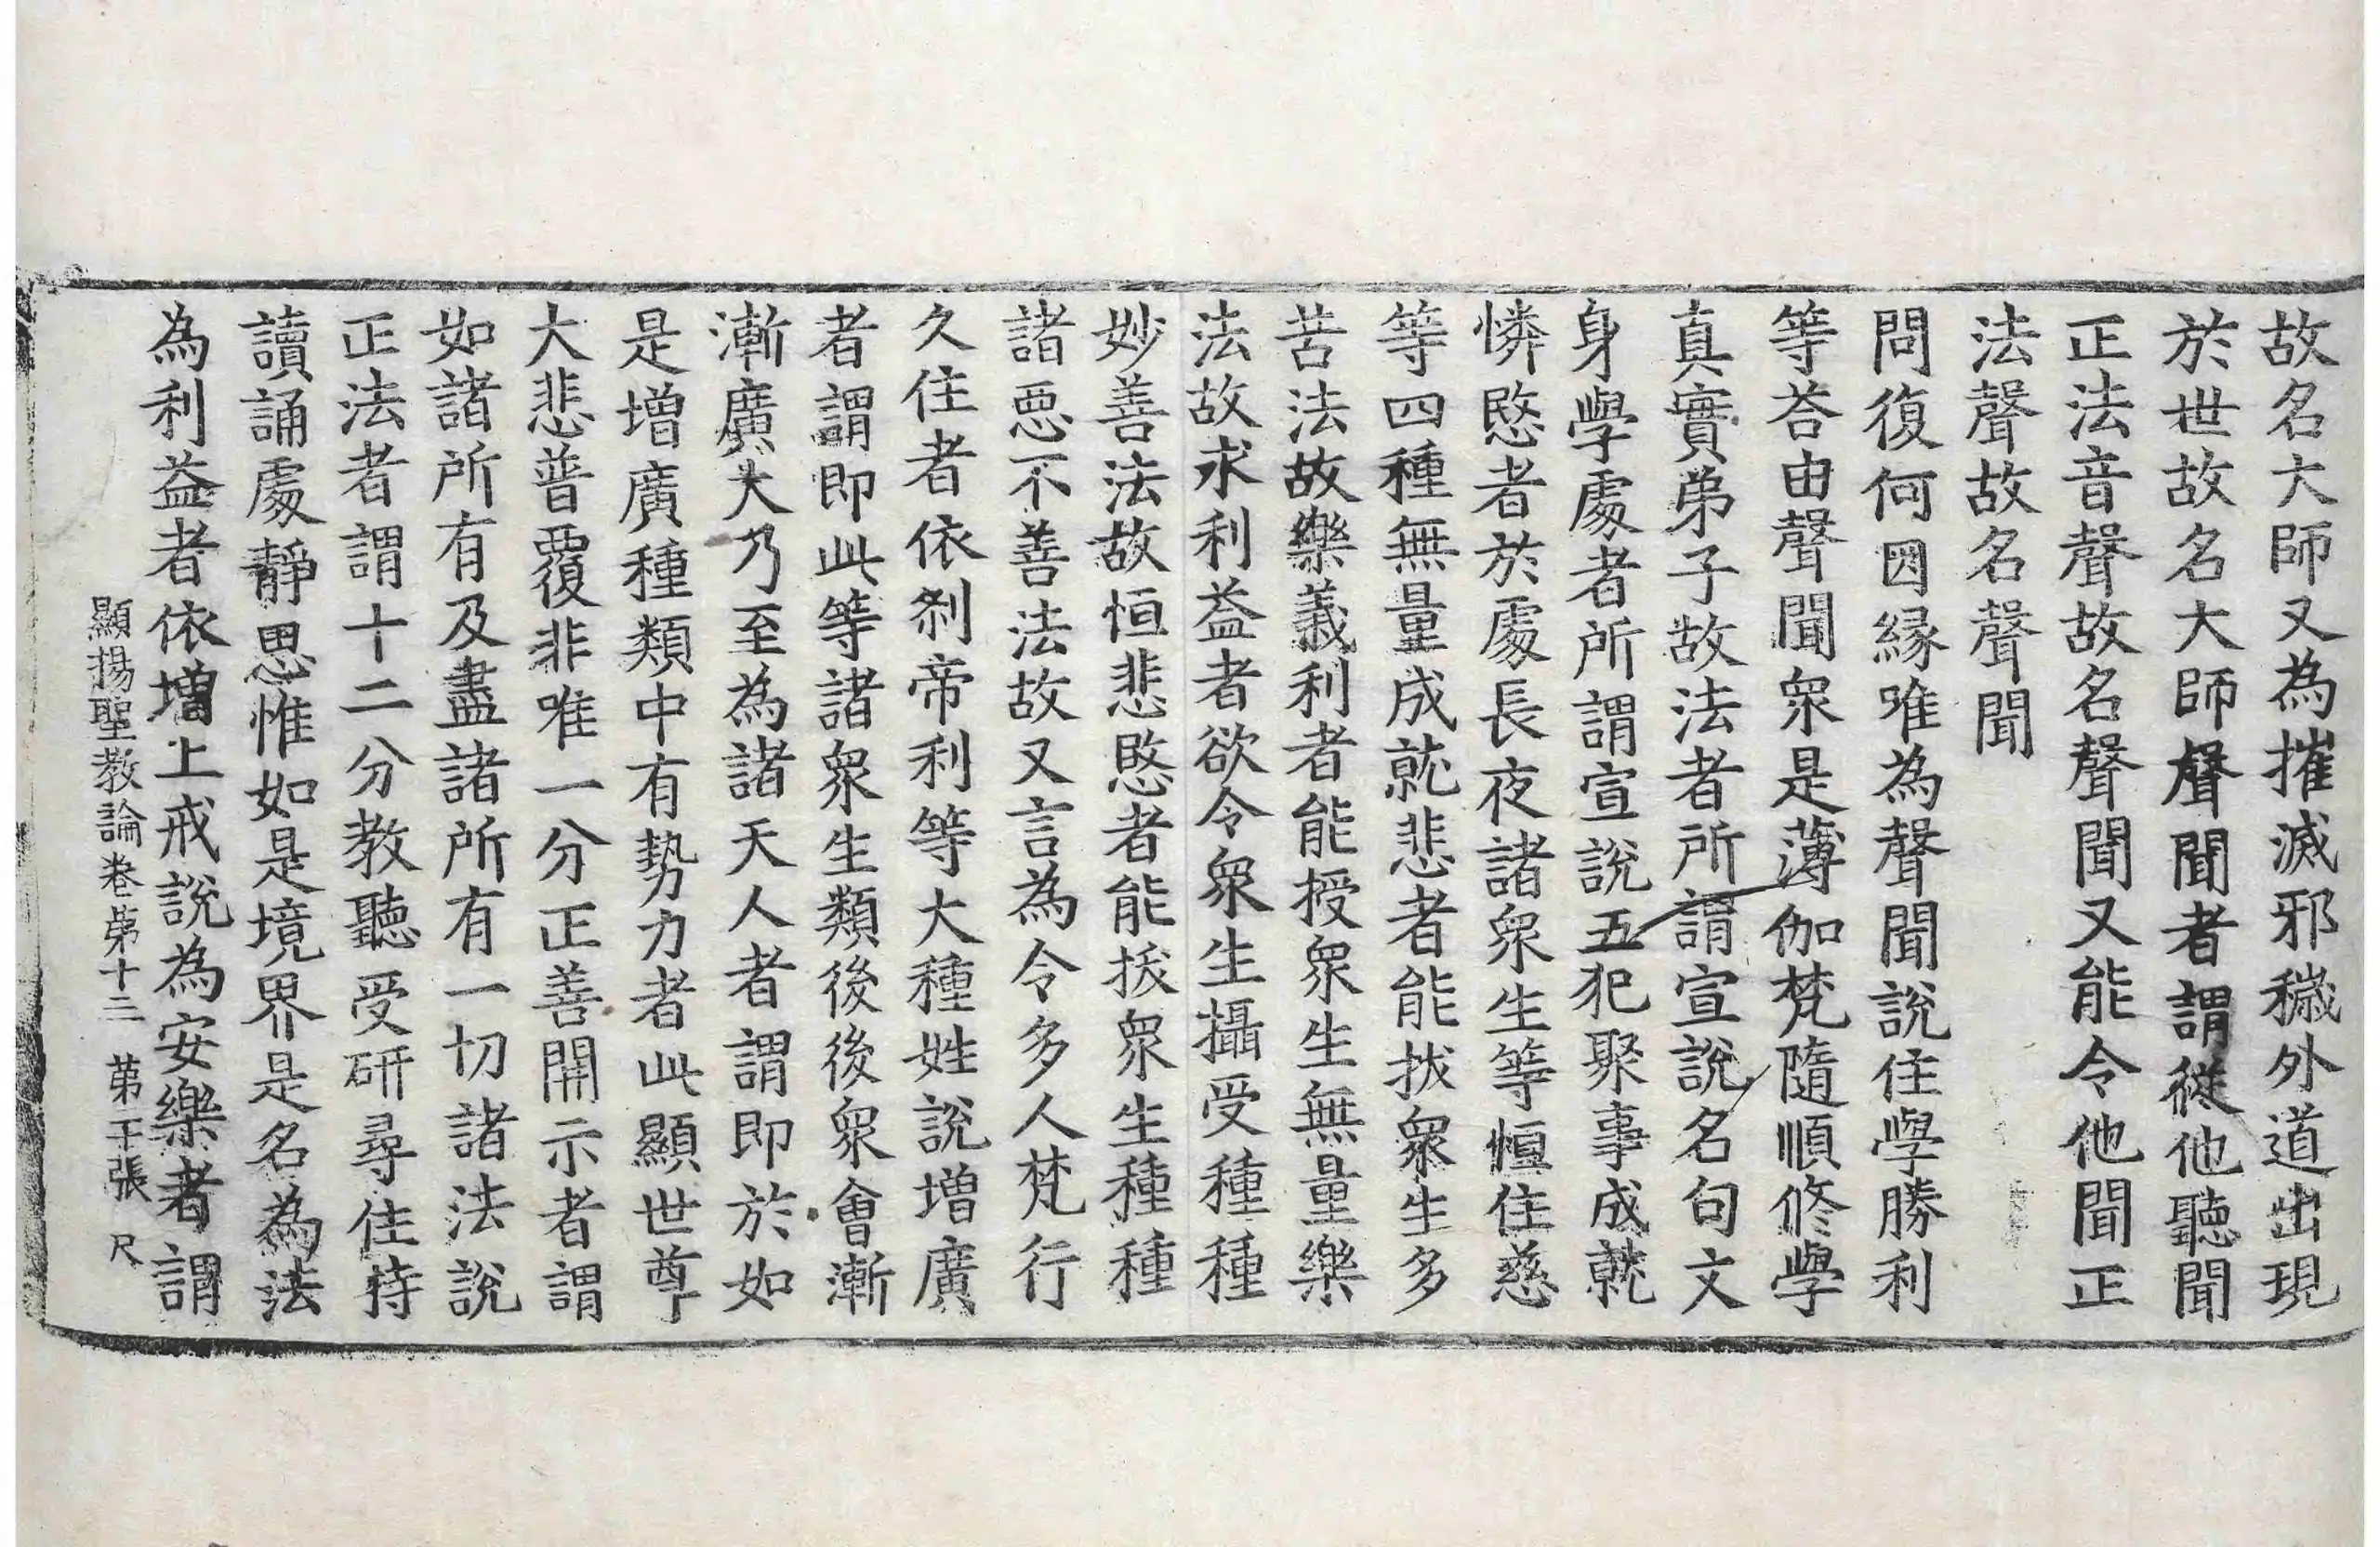 故名大師又為摧滅邪穢外道出現
於世故名大師聲聞者謂從他聽聞
正法音聲故名聲聞又能令他聞正
法聲故名聲聞
問復何因緣唯為聲聞說住學勝利
等荅由聲聞衆是薄伽梵隨順修學
真實弟子故法者所謂宣說名句文
身學處者所謂宣說五犯聚事成就
憐愍者於處長夜諸衆生等恒住慈
等四種無量成就悲者能拔衆生多
苦法故樂義利者能授衆生無量樂
法故求利益者欲令衆生攝受種種
妙善法故恒悲愍者能拔衆生種種
諸惡不善法故又言為令多人梵行
久住者依刹帝利等大種姓說增廣
者謂即此等諸衆生類後後衆會漸
漸廣大乃至為諸天人者謂即於如
是增廣種類中有勢力者此顯世尊
大悲普覆非唯一分正善開示者謂
如諸所有及盡諸所有一切諸法說
正法者謂十二分教聽受研尋住持
讀誦處靜思惟如是境界是名為法
為利益者依增上戒說為安樂者謂
顯揚聖教論卷第十三 第十張 尺